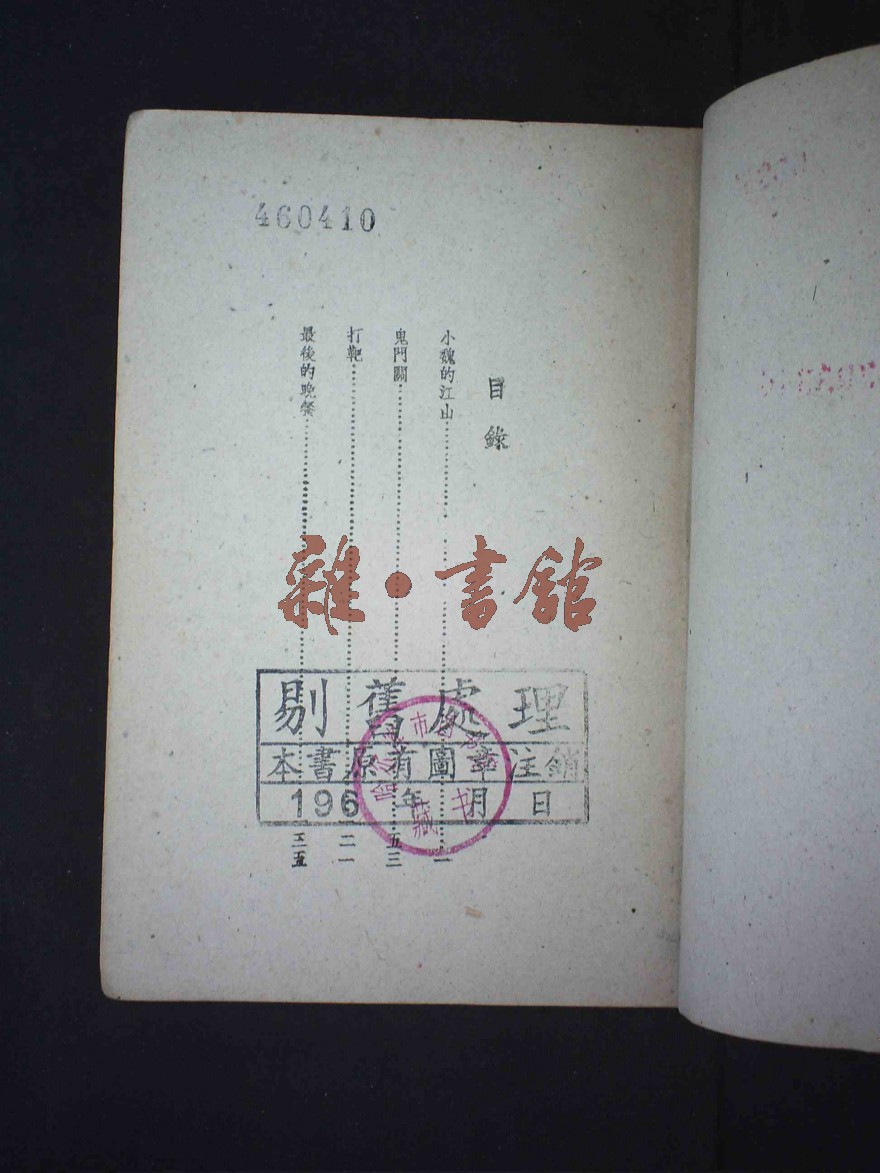 460410
目錄
小魏的江山……一
鬼門關……五三
打靶……二一
最後的晚餐……三五
雜·書館
剔舊處理
本書原有圖章注銷
196 年 月 日
市
藏